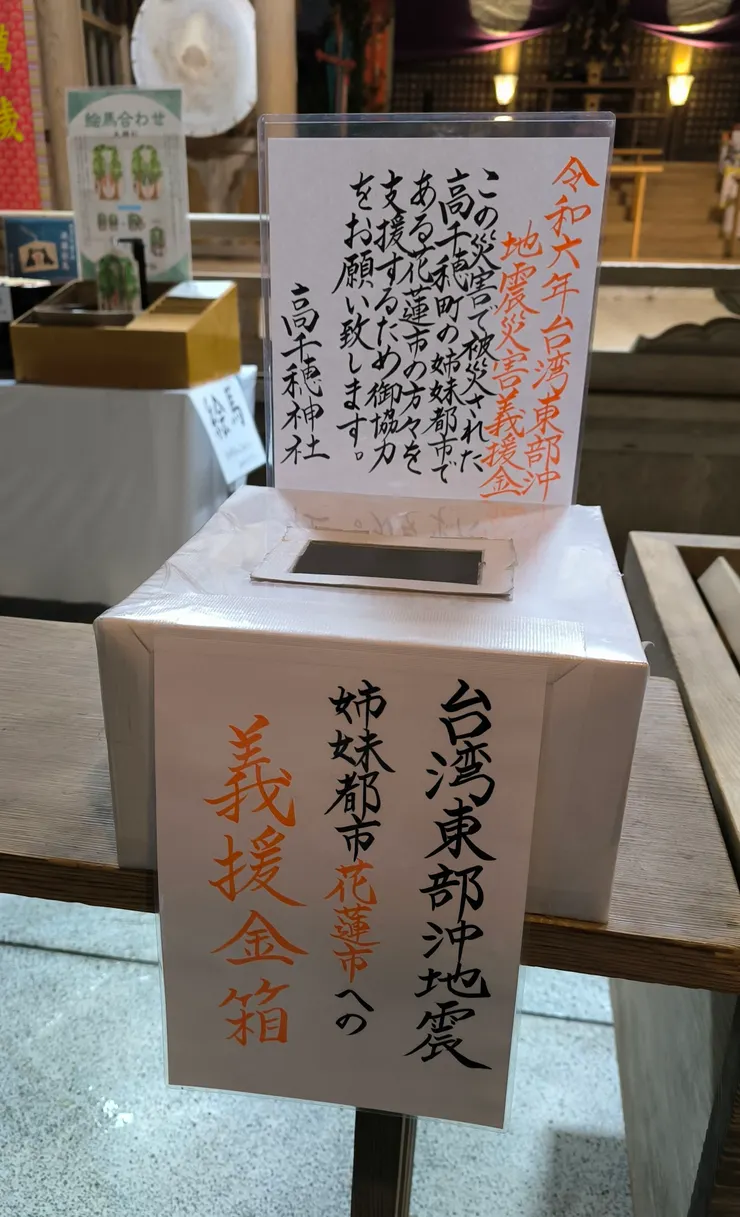 令和六年台湾東部沖
地震災害義援金
この災害で被災された
高千穂町の姉妹都市で
ある花蓮市の方々を
支援するため御協力
をお願い致します。
高千穂神社
台湾東部沖地震
姉妹都市花蓮市への
義援金箱
絵馬合わせ
絵馬
萬歳